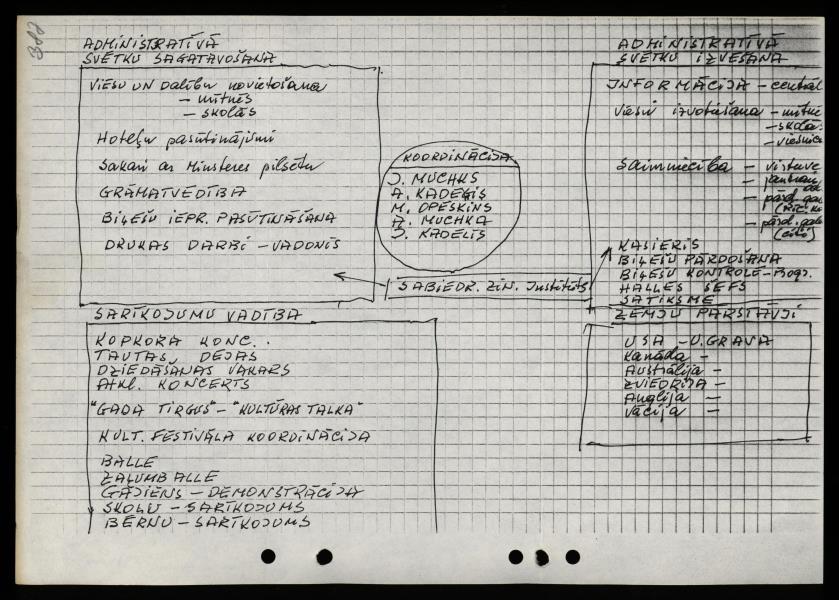 ADMINISTRATĪVĀ
SVĒTKU SAGATAVOŠANA
VIESU UN Dalībn. novietošana
- mītnēs
- skolās
Hoteļu pasūtinājumi
Sakari ar Minsteres pilsētu
GRĀMATVEDĪBA
BIĻEŠU IEPR. PASŪTINĀŠANA
DRUKAS DARBI - VADONIS
KOORDINĀCIJA
J. MUCHKS
A. KADEĢIS
M. OPESKINS
A. MUCHKA
J. KADELIS
SABIEDR. ZIN. Institūts
ADMINISTRATĪVĀ
SVĒTKU IZVEŠANA
INFORMĀCIJA - centrāl
Viesu izvietošana - mītne
- skolā
- viesnīca
SAIMNIECĪBA - virtuve
- pārd. gal
- pārd. gal
(citi)
KASIERIS
BIĻEŠU PĀRDOŠANA
BIĻEŠU KONTROLE - Progr.
HALLES ŠEFS
SATIKSME
SARĪKOJUMU VADĪBA
KOPKORA KONC.
TAUTAS DEJAS
DZIEDĀŠANAS VAKARS
Atkl. KONCERTS
"GADA TIRGUS" - "KULTŪRAS TALKA"
KULT. FESTIVĀLA KOORDINĀCIJA
BALLE
ZAĻUMBALLE
GĀJIENS - DEMONSTRĀCIJA
SKOLU - SARĪKOJUMS
BĒRNU - SARĪKOJUMS
ZEMJU PĀRSTĀVJI
USA - U. GRAVA
Kanāda -
Austrālija -
ZVIEDRIJA -
Anglija -
Vācija -